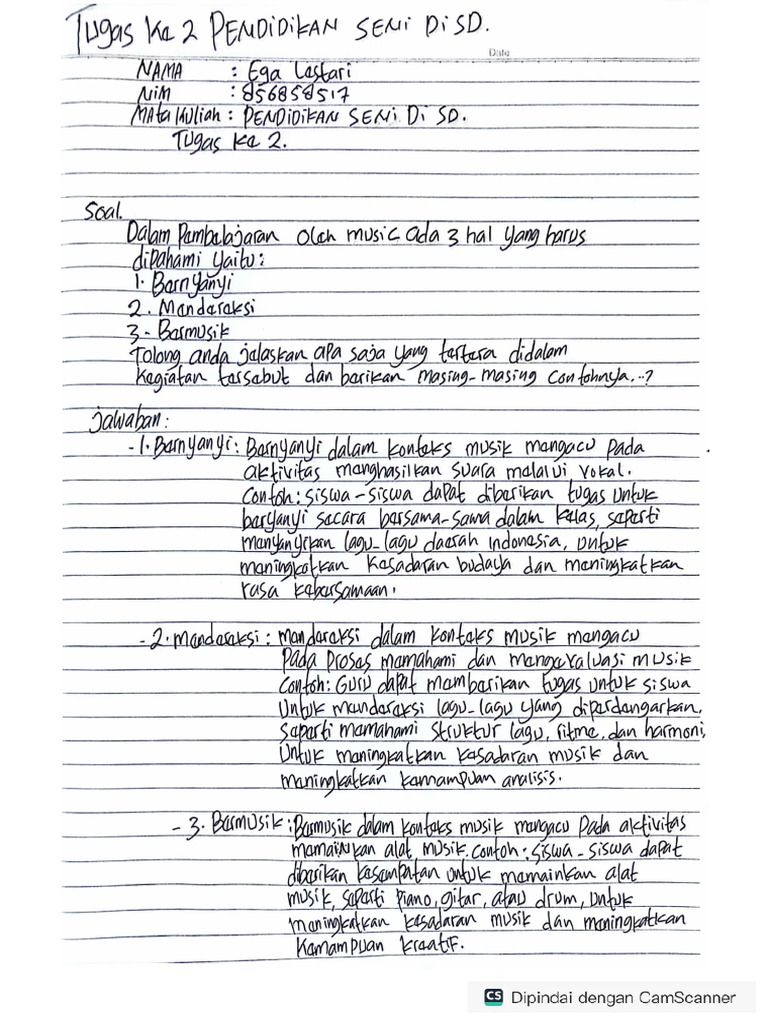 Tugas Ke 2 PENDIDIKAN SENI Di SD.
Date
NAMA : Ega Lestari
NiM : 856858517
MATA kuliah : PENDIDIKAN SENI Di SD.
Tugas Ke 2.
Soal.
Dalam Pembelajaran olah music ada 3 hal yang harus
dipahami yaitu:
1. Bernyanyi
2. Menderaksi
3. Bermusik
Tolong anda jelaskan apa saja yang tertera didalam
kegiatan tersebut dan berikan masing-masing contohnya..?
jawaban:
- 1. Bernyanyi: Bernyanyi dalam konteks musik mengacu pada
aktivitas menghasilkan suara melalui vokal.
Contoh: siswa-siswa dapat diberikan tugas untuk
beryanyi secara bersama-sama dalam kelas, seperti
menyanyikan lagu-lagu daerah indonesia, untuk
meningkatkan kesadaran budaya dan meningkatkan
rasa kebersamaan.
- 2. menderaksi : menderaksi dalam konteks musik mengacu
pada proses memahami dan mengevaluasi musik
Contoh: Guru dapat memberikan tugas untuk siswa
untuk menderaksi lagu-lagu yang diperdengarkan,
seperti memahami struktur lagu, ritme, dan harmoni,
untuk meningkatkan kesadaran musik dan
meningkatkan kemampuan analisis.
- 3. Bermusik : Bermusik dalam konteks musik mengacu pada aktivitas
memainkan alat musik. contoh: siswa-siswa dapat
diberikan kesempatan untuk memainkan alat
musik, seperti piano, gitar, atau drum, untuk
meningkatkan kesadaran musik dan meningkatkan
kemampuan kreatif.
CS Dipindai dengan CamScanner